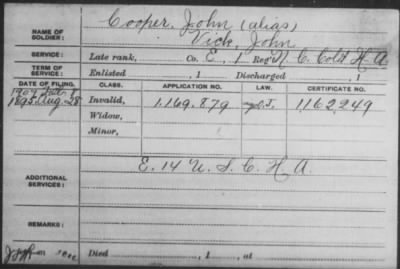 Cooper, John (alias)
NAME OF SOLDIER: Vick, John
SERVICE: Late rank, Co. E, 1 Reg't N. C. Cold H. A.
TERM OF SERVICE: Enlisted , 1 Discharged , 1
DATE OF FILING. CLASS. APPLICATION NO. LAW. CERTIFICATE NO.
1895, Aug. 28 Invalid, 1.169.879 1162249
Widow,
Minor,
ADDITIONAL SERVICES: E. 14 U. S. C. H. A.
REMARKS:
Died , 1 , at